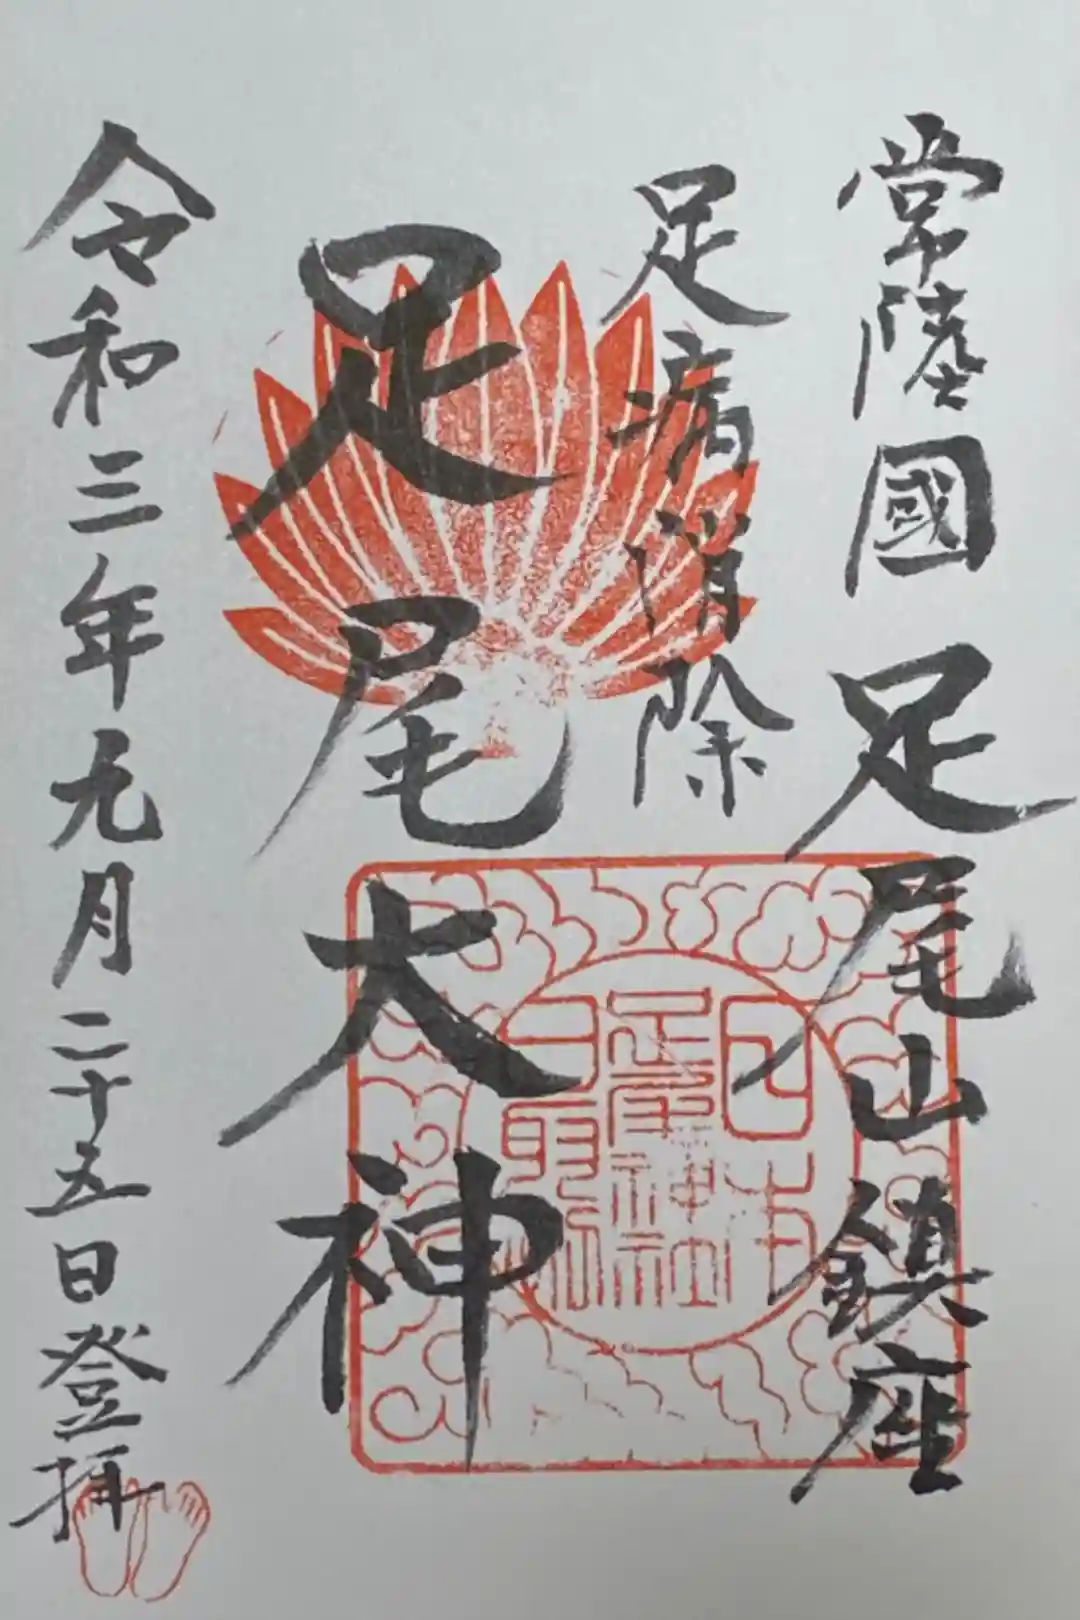 常陸國 足尾山鎮座
足病消除
足尾大神
令和三年元月二十五日登拝
足尾神社